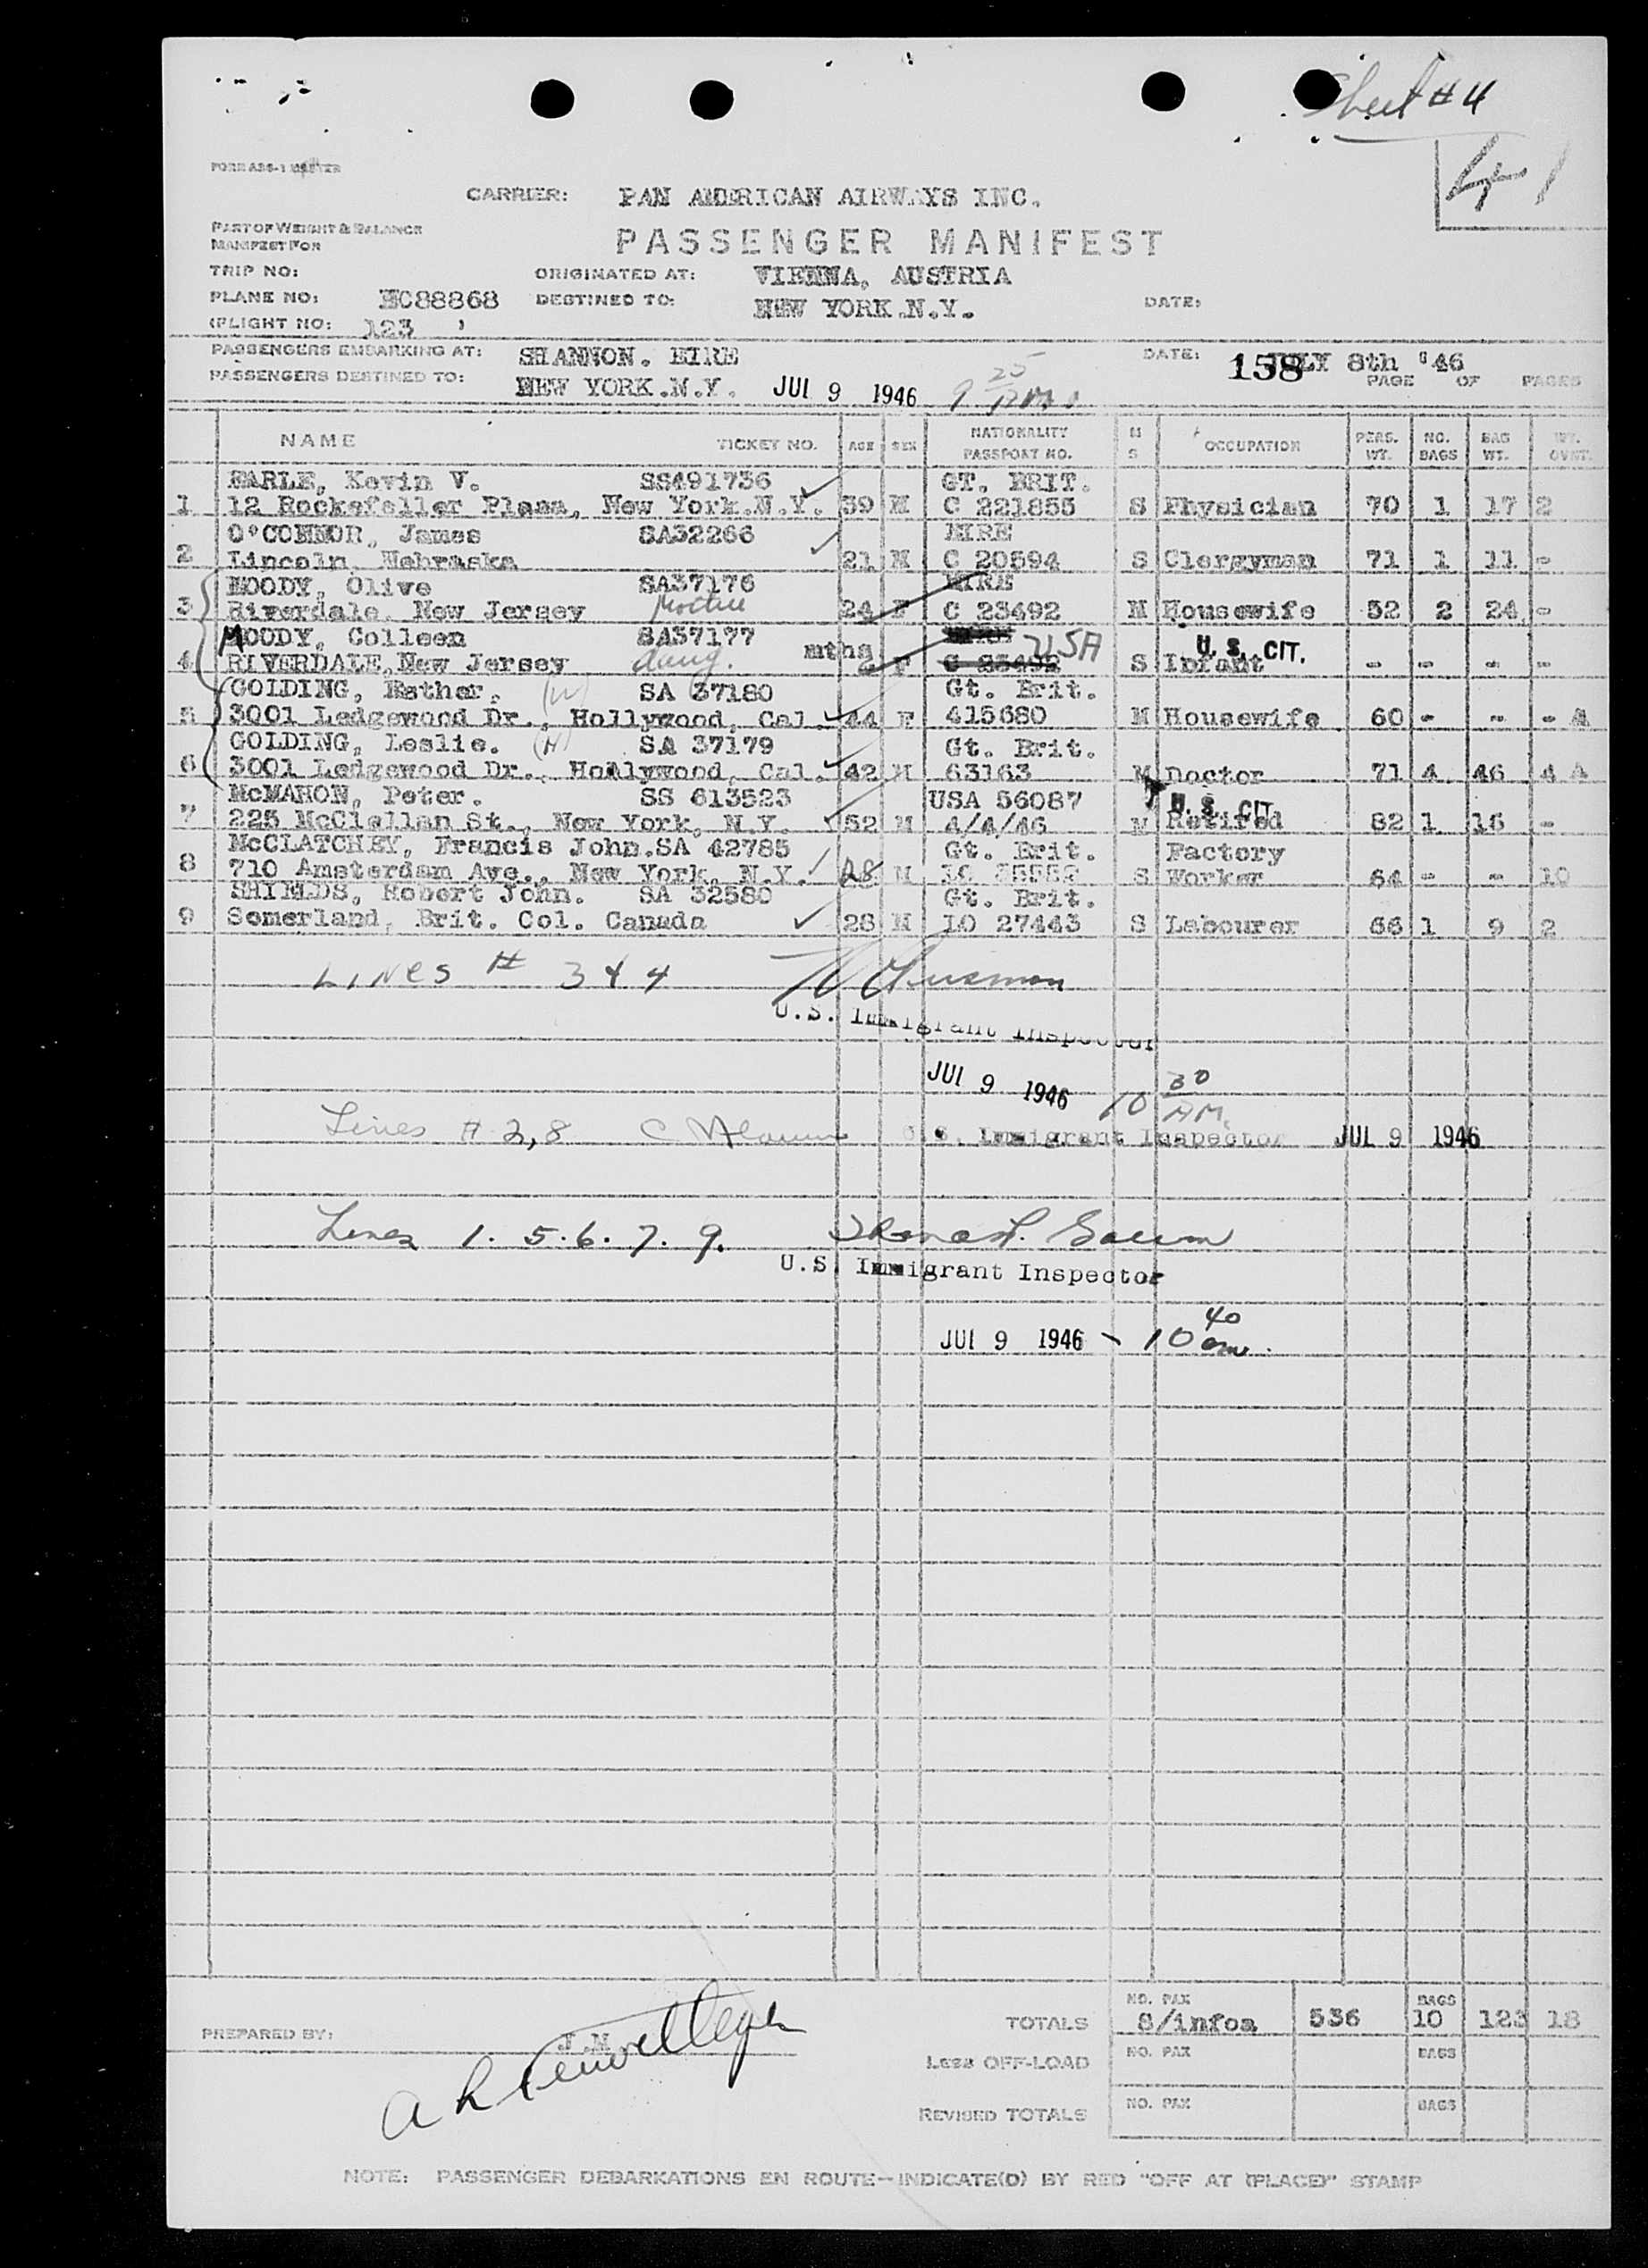 Sheet # 4
4
CARRIER: PAN AMERICAN AIRWAYS INC.
PART OF WEIGHT & BALANCE
MANIFEST FOR
PASSENGER MANIFEST
TRIP NO: ORIGINATED AT: VIENNA, AUSTRIA
PLANE NO: NC88868 DESTINED TO: NEW YORK.N.Y. DATE:
(FLIGHT NO: 123
PASSENGERS EMBARKING AT: SHANNON. EIRE DATE: 158 JULY 8th '46
PASSENGERS DESTINED TO: NEW YORK.N.Y. JUL 9 1946 9 25 PAGE OF PAGES
NAME TICKET NO. AGE SEX NATIONALITY PASSPORT NO. M S OCCUPATION PERS. WT. NO. BAGS BAG WT. WT. OVWT.
EARLE, Kevin V. SS491736 GT. BRIT.
1 12 Rockefeller Plaza, New York.N.Y. 39 M C 221855 S Physician 70 1 17 2
O'CONNOR, James SA32266 EIRE
2 Lincoln, Nebraska 21 M C 20594 S Clergyman 71 1 11 -
MOODY, Olive SA37176 EIRE
3 Riverdale, New Jersey Mother 24 F C 23492 M Housewife 52 2 24 -
MOODY, Colleen SA37177 mths USA U.S. CIT.
4 RIVERDALE, New Jersey daug. F C 23492 S Infant - - - -
GOLDING, Esther. (W) SA 37180 Gt. Brit.
5 3001 Ledgewood Dr., Hollywood, Cal. 44 F 415680 M Housewife 60 - - - 4
GOLDING, Leslie. (H) SA 37179 Gt. Brit.
6 3001 Ledgewood Dr., Hollywood, Cal. 42 M 63163 M Doctor 71 4 46 4 4
McMAHON, Peter. SS 613523 USA 56087 U. S. CIT.
7 225 McClellan St., New York, N.Y. 52 M 4/4/46 M Retired 82 1 16 -
McCLATCHEY, Francis John. SA 42785 Gt. Brit. Factory
8 710 Amsterdam Ave., New York, N.Y. 28 M S Worker 64 - - 10
SHIELDS, Robert John. SA 32580 Gt. Brit.
9 Somerland, Brit. Col. Canada 28 M IO 27443 S Labourer 66 1 9 2
LINES # 3 & 4
U.S. Immigrant Inspector
JUL 9 1946 10 30 AM.
Lines # 2, 8 U.S. Immigrant Inspector JUL 9 1946
Lines 1. 5. 6. 7. 9.
U.S. Immigrant Inspector
JUL 9 1946 - 10 40 am.
PREPARED BY: J.M
TOTALS NO. PAX 8/infoa 536 BAGS 10 123 18
Less OFF-LOAD NO. PAX BAGS
REVISED TOTALS NO. PAX BAGS
NOTE: PASSENGER DEBARKATIONS EN ROUTE-INDICATE(D) BY RED "OFF AT (PLACE)" STAMP